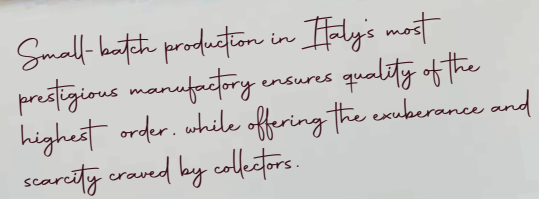 Small-batch production in Italy's most
prestigious manufactory ensures quality of the
highest order. while offering the exuberance and
scarcity craved by collectors.